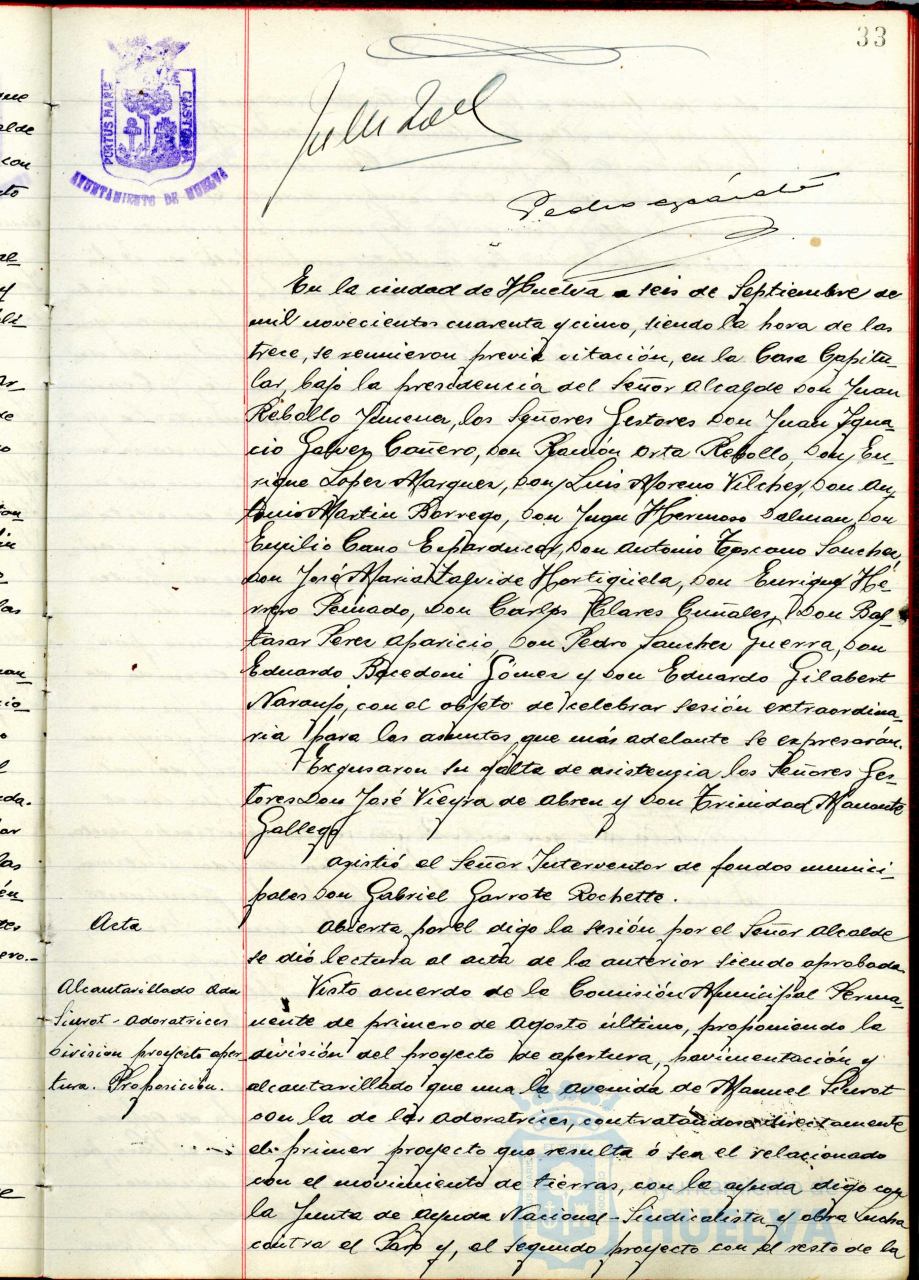 33
PORTUS MARIS
CUSTODIA
AYUNTAMIENTO DE HUELVA
Pedro
En la ciudad de Huelva a seis de Septiembre de
mil novecientos cuarenta y cinco, siendo la hora de las
trece, se reunieron previa citación, en la Casa Capitu-
lar, bajo la presidencia del Señor Alcalde Don Juan
Rebollo Jimena, los Señores Gestores Don Juan Igna-
cio Galvez Cañero, Don Ramón Orta Rebollo, Don En-
rique Lopez Marquez, Don Luis Moreno Vilchez, Don An-
tonio Martin Borrego, Don Juan Hermoso Dalman, Don
Emilio Cano Esparducer, Don Antonio Toscano Sanchez,
Don José Maria Zalvide Hortigüela, Don Enrique He-
rrero Peinado, Don Carlos Clares Guñales, Don Bal-
tasar Perez Aparicio, Don Pedro Sanchez Guerra, Don
Eduardo Bocedoni Gómez y Don Eduardo Gilabert
Naranjo, con el objeto de celebrar sesión extraordina-
ria para los asuntos que más adelante se expresarán.
Excusaron su falta de asistencia los Señores Ges-
tores Don José Vieyra de Abreu y Don Trinidad Manante
Gallego
Asistió el Señor Interventor de fondos munici-
pales Don Gabriel Garrote Rochette.
Acta
Abierta por el digo la sesión por el Señor Alcalde
se dió lectura al acta de la anterior siendo aprobada
Alcantarillado Avda
Siurot-Adoratrices
Division proyecto aper-
tura. Proposición.
Visto acuerdo de la Comisión Municipal Perma-
nente de primero de Agosto último, proponiendo la
división del proyecto de apertura, pavimentación y
alcantarillado que una la avenida de Manuel Siurot
con la de las Adoratrices, contratandose directamente
el primer proyecto que resulta ó sea el relacionado
con el movimiento de tierras, con la ayuda digo con
la Junta de ayuda Nacional-Sindicalista y obra Lucha
contra el Paro y, el segundo proyecto con el resto de la
Ayuntamiento de
HUELVA